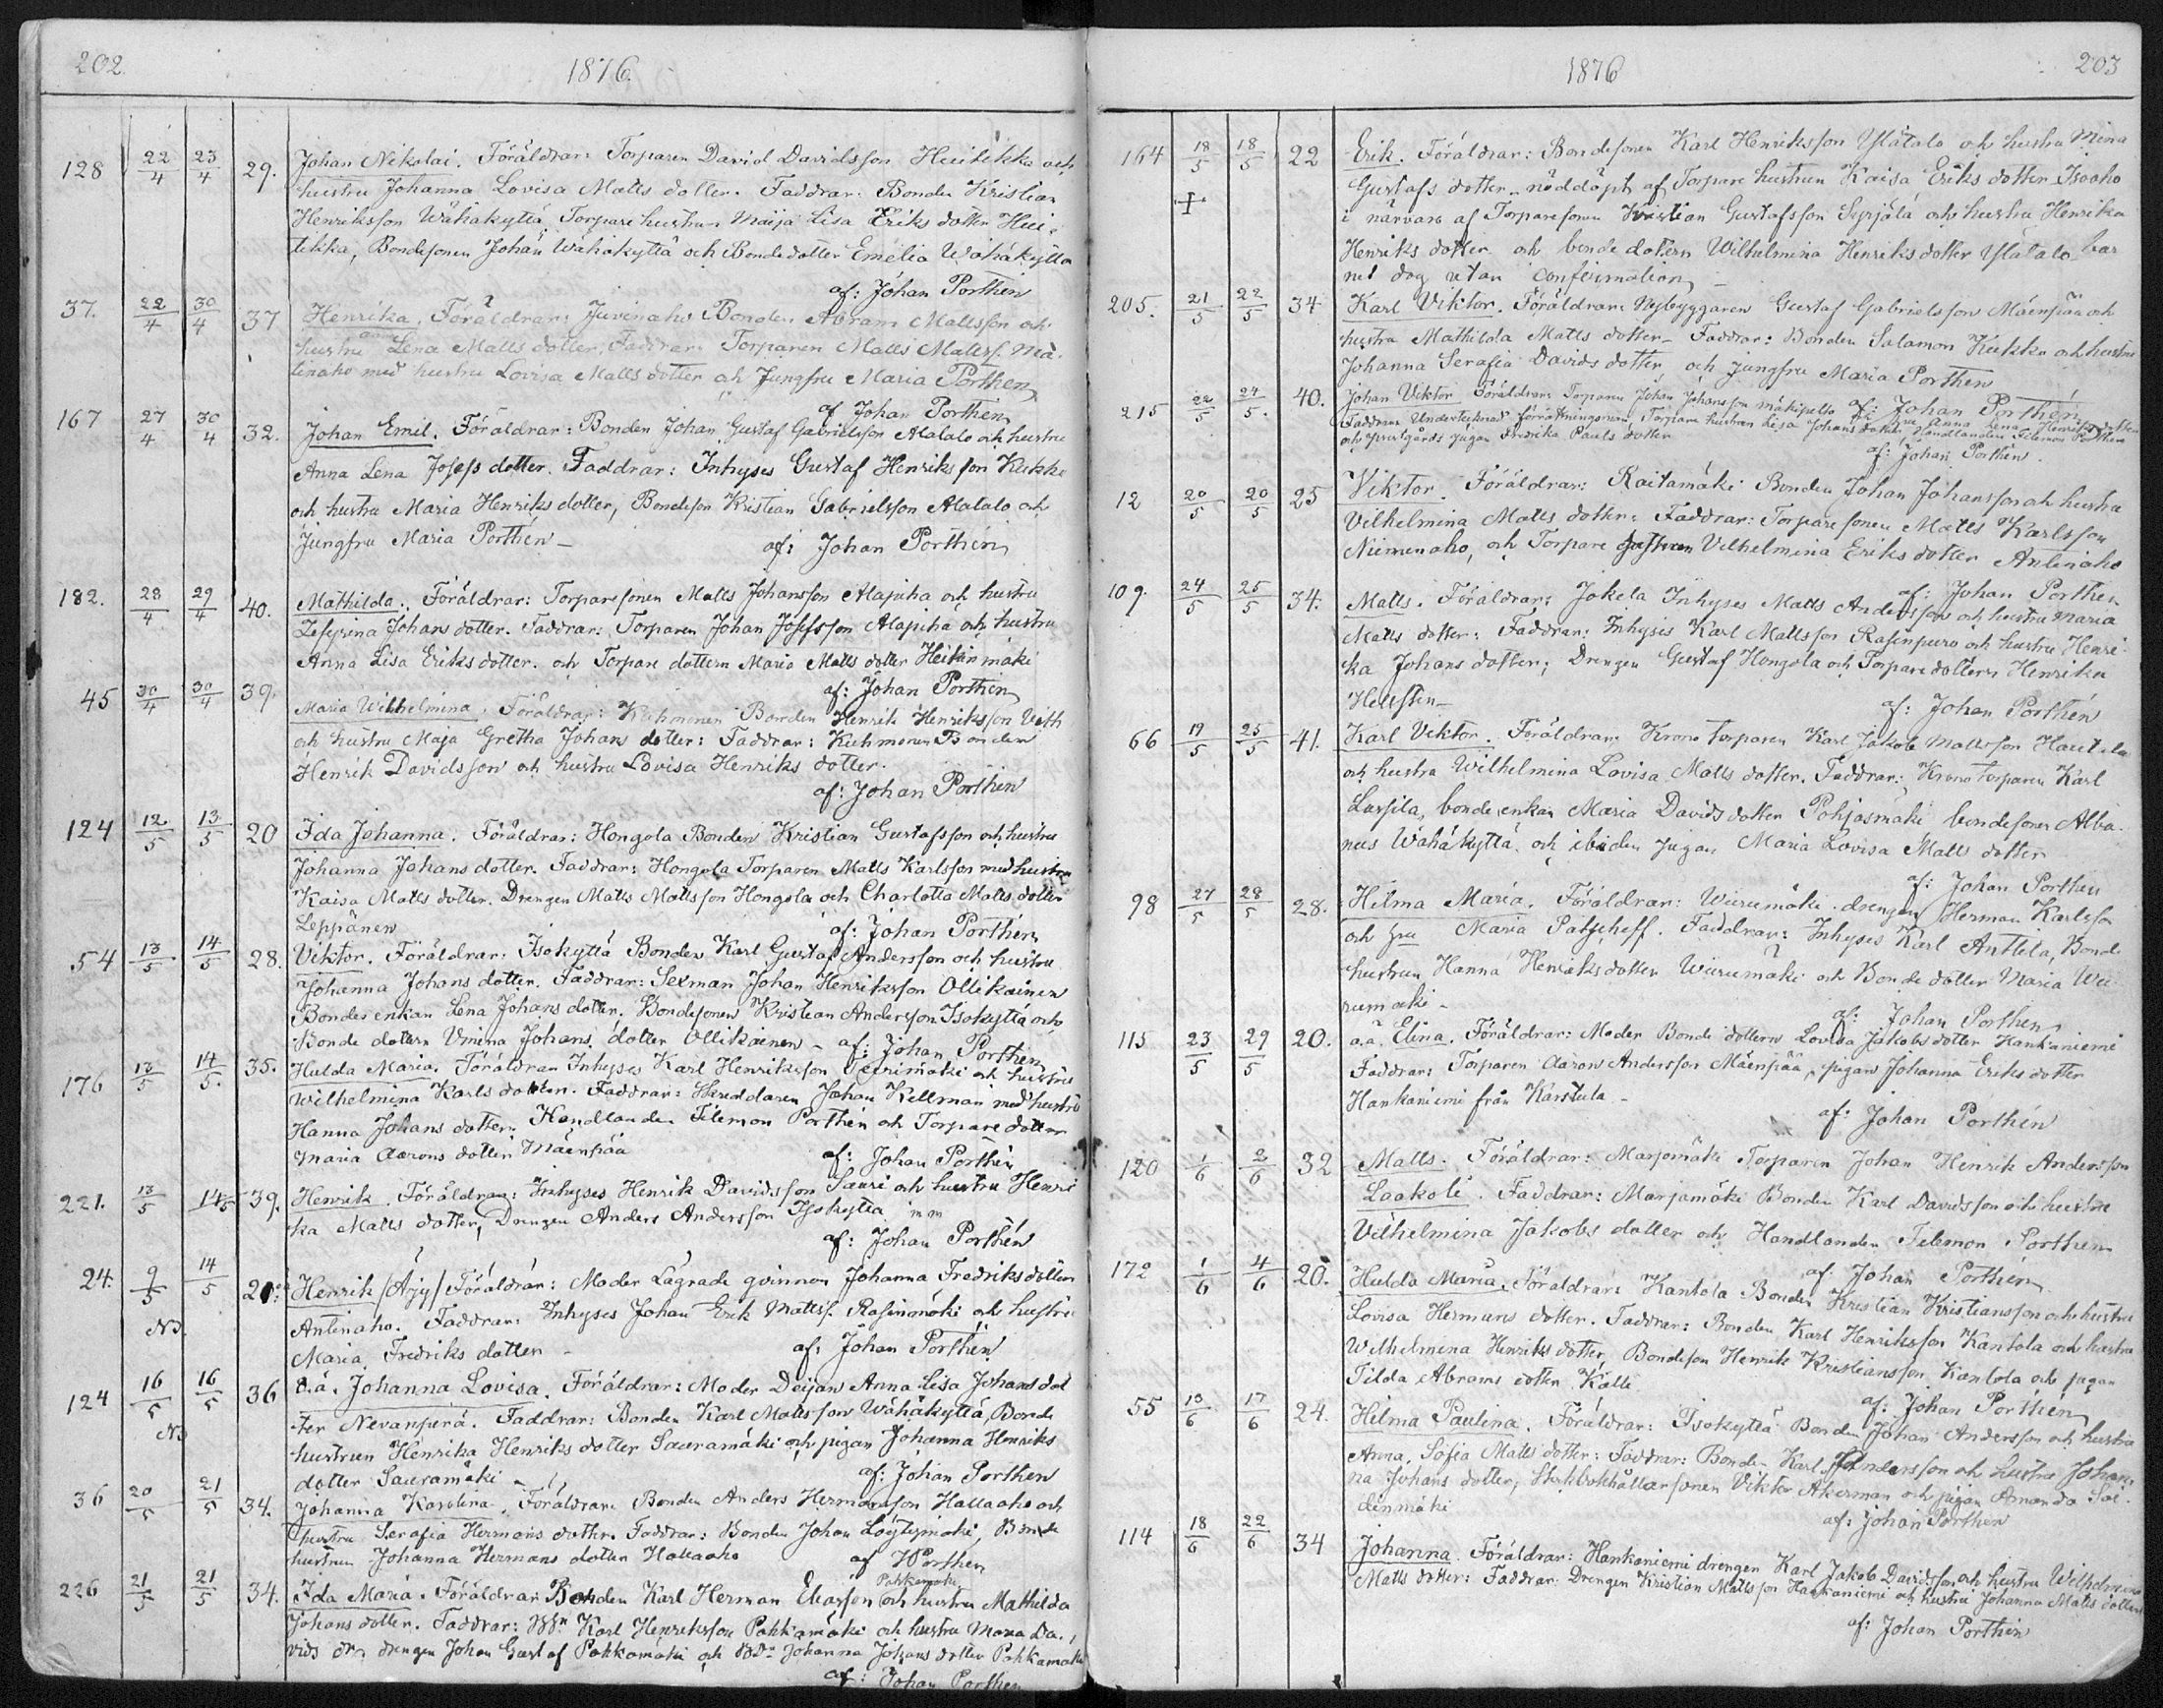 202.
1876.
128 22/4 23/4 29. Johan Nikolai. Föräldrar: Torparen David Davidsson Huitikka och
hustru Johanna Lovisa Matts dotter. Faddrar: Bonden Kristian
Henriksson Wähäkyttä, Torpare hustrun Maija Lisa Eriks dotter Hui-
tikka, Bondesonen Johan Wähäkyttä och Bondedotter Emelia Wähäkyttä
af: Johan Porthén
37. 22/4 30/4 37 Henrika. Föräldrar: Juvinaho Bonden Abram Mattsson och
hustru Lena Matts dotter. Faddrar: Torparen Matts Mattss.
med hustru Lovisa Matts dotter och Jungfru Maria Porthen
af Johan Porthen
167 27/4 30/4 32. Johan Emil. Föräldrar: Bonden Johan Gustaf Gabrielsson Alatalo och hustru
Anna Lena Josefs dotter. Faddrar: Inhyses Gustaf Henriksson Kukko
och hustru Maria Henriks dotter, Bondeson Kristian Gabrielsson Alatalo och
Jungfru Maria Porthén — af: Johan Porthén
182. 28/4 29/4 40. Mathilda. Föräldrar: Torparesonen Matts Johansson Alapiha och hustru
Zefyrina Johans dotter. Faddrar: Torparen Johan Josefsson Alapiha och hustru
Anna Lisa Eriks dotter. och Torpare dottern Maria Matts dotter Heikinmäki
af: Johan Porthen
45 30/4 30/4 39. Maria Wilhelmina. Föräldrar: Kuhmonen Bonden Henrik Henriksson
och hustru Maja Gretha Johans dotter: Faddrar: Kuhmonen Bonden
Henrik Davidsson och hustru Lovisa Henriks dotter.
af: Johan Porthén
124 12/5 13/5 20 Ida Johanna. Föräldrar: Hongola Bonden Kristian Gustafsson och hustru
Johanna Johans dotter. Faddrar: Hongola Torparen Matts Karlsson med hustru
Kaisa Matts dotter. Drengen Matts Mattsson Hongola och Charlotta Matts dotter
Leppänen af: Johan Porthén
54 13/5 14/5 28. Viktor. Föräldrar: Isokyttä Bonden Karl Gustaf Andersson och hustru
Johanna Johans dotter. Faddrar: Sexman Johan Henriksson Ollikainen
Bondes enkan Lena Johans dotter. Bondesonen Kristian Andersson Isokyttä och
Bonde dottern Vmina Johans dotter Ollikainen - af: Johan Porthen
176 13/5 14/5. 35. Hulda Maria. Föräldrar Inhyses Karl Henriksson och hustru
Wilhelmina Karls dotter. Faddrar: Häradaren Johan Kellman med hustru
Hanna Johans dotter. Handlanden Filemon Porthén och Torpare dotter
Maria Aarons dotter Mäenpää af: Johan Porthén
221. 13/5 14/5 39. Henrik. Föräldrar: Inhyses Henrik Davidsson Sauri och hustru Henri
ka Matts dotter, Drengen Anders Andersson Isokyttä m m
af: Johan Porthén
24. 9/5 14/5 20. Henrik /Arjy/ Föräldrar: Moder Lägrade qvinnan Johanna Fredriks dotter
Antinaho. Faddrar: Inhyses Johan Erik Mattss. Rasinmäki och hustru
Maria Fredriks dotter - af: Johan Porthén
124 16/5 16/5 36 o.ä. Johanna Lovisa. Föräldrar: Moder Deijan Anna Lisa Johans dot
ter Nevanperä. Faddrar: Bonden Karl Mattsson Wähäkyttä, Bonde
hustrun Henrika Henriks dotter Sauramäki och pigan Johanna Henriks
dotter Sauramäki - af: Johan Porthen
36 20/5 21/5 34. Johanna Karolina. Föräldrar Bonden Anders Hermansson Hallaaho och
hustru Serafia Hermans dotter. Faddrar: Bonden Johan Löytymäki, Bonde
hustrun Johanna Hermans dotter Hallaaho af Porthen
226 21/5 21/5 34. Ida Maria. Föräldrar Bonden Karl Herman Eliasson Pahkamäki och hustru Mathilda
Johans dotter. Faddrar: Karl Henriksson Pahkamäki och hustru Maria Da-
vids dr. drengen Johan Gustaf Pahkamäki och Johanna Johans dotter Pahkamäki
af: Johan Porthen
1876
203
164 18/5 18/5 22 Erik. Föräldrar: Bondesonen Karl Henriksson Ylätalo och hustru Mina
Gustafs dotter - nöddöpt af Torpare hustrun Kaisa Eriks dotter Isoaho
i närvaro af Torparesonen Kristian Gustafsson Syrjälä och hustru Henrika
Henriks dotter och bonde dottern Wilhelmina Henriks dotter Ylätalo bar
net dog utan confirmation
205. 21/5 22/5 34 Karl Viktor. Föräldrar: Nybyggaren Gustaf Gabrielsson Mäenpää och
hustru Mathilda Matts dotter - Faddrar: Bonden Salamon Kukko och hustru
Johanna Serafia Davids dotter, och jungfru Maria Porthen
af: Johan Porthén
215 22/5 24/5. 40. Johan Viktor Föräldrar: Torparen Johan Johansson Mäkipelto och hustru Anna Lena Henriksdotter
Faddrar Undertecknad förrättningsman, Torpare hustrun Lisa Johans dotter, Handlanden Filemon Porthen
och prestgårds pigan Fredrika Pauls dotter af: Johan Porthen.
12 20/5 20/5 25 Viktor. Föräldrar: Raitamäki Bonden Johan Johansson och hustru
Vilhelmina Matts dotter: Faddrar: Torparesonen Matts Karlsson
Niimenaho, och Torpare hustrun Vilhelmina Eriks dotter Antinaho
af: Johan Porthen
109. 24/5 25/5 34. Matts. Föräldrar: Jokela Inhyses Matts Andersson och hustru Maria
Matts dotter: Faddrar: Inhyses Karl Mattsson Rasinpuro och hustru Henri-
ka Johans dotter; Drengen Gustaf Hongola och Torparedottern Henrika
Hellsten - af: Johan Porthén
66 19/5 25/5 41. Karl Viktor. Föräldrar: Krono torparen Karl Jakob Mattsson Hautala
och hustru Wilhelmina Lovisa Matts dotter. Faddrar: Krono torparen Karl
Lassila, bonde enkan Maria Davids dotter Pohjasmäki bondesonen Alba-
nus Wähäkyttä och ibidem pigan Maria Lovisa Matts dotter
af: Johan Porthen
98 27/5 28/5 28. Hilma Maria. Föräldrar: Wuorimäki drengen Herman Karlsson
och hru Maria Patscheff. Faddrar: Inhyses Karl Anttila, Bonde
hustrun Hanna Henriksdotter Wuorimäki och Bonde dotter Maria Wu-
rumäki - af: Johan Porthen
115 23/5 29/5 20. o.ä. Elina. Föräldrar: Moder Bonde dottern Lovisa Jakobs dotter Hankaniemi
Faddrar: Torparen Aaron Andersson Mäenpää, pigan Johanna Eriks dotter
Hankaniemi från Karstula -
af: Johan Porthén
120 1/6 2/6 32 Matts. Föräldrar: Marjomäki Torparen Johan Henrik Andersson
Laakoli. Faddrar: Marjamäki Bonden Karl Davidsson och hustru
Vilhelmina Jakobs dotter och Handlanden Filemon Porthen
af: Johan Porthen
172 1/6 4/6 20. Hulda Maria. Föräldrar: Kantola Bonden Kristian Kristiansson och hustru
Lovisa Hermans dotter. Faddrar: Bonden Karl Henriksson Kantola och hustru
Wilhelmina Henriks dotter, Bondeson Henrik Kristiansson Kantola och pigan
Tilda Abrams dotter Källi
af: Johan Porthén
55 13/6 17/6 24. Hilma Paulina. Föräldrar: Isokyttä Bonden Johan Andersson och hustru
Anna Sofia Matts dotter: Faddrar: Bonden Karl Andersson och hustru Johan-
na Johans dotter, Skjutsbokhållarsonen Viktor Akerman och pigan Amanda Soi-
denmäki af: Johan Porthen
114 18/6 22/6 34 Johanna. Föräldrar: Hankaniemi drengen Karl Jakob Davidsson och hustru Wilhelmina
Matts dotter: Faddrar: Drengen Kristian Mattsson Hankaniemi och hustru Johanna Matts dotter
af: Johan Porthén